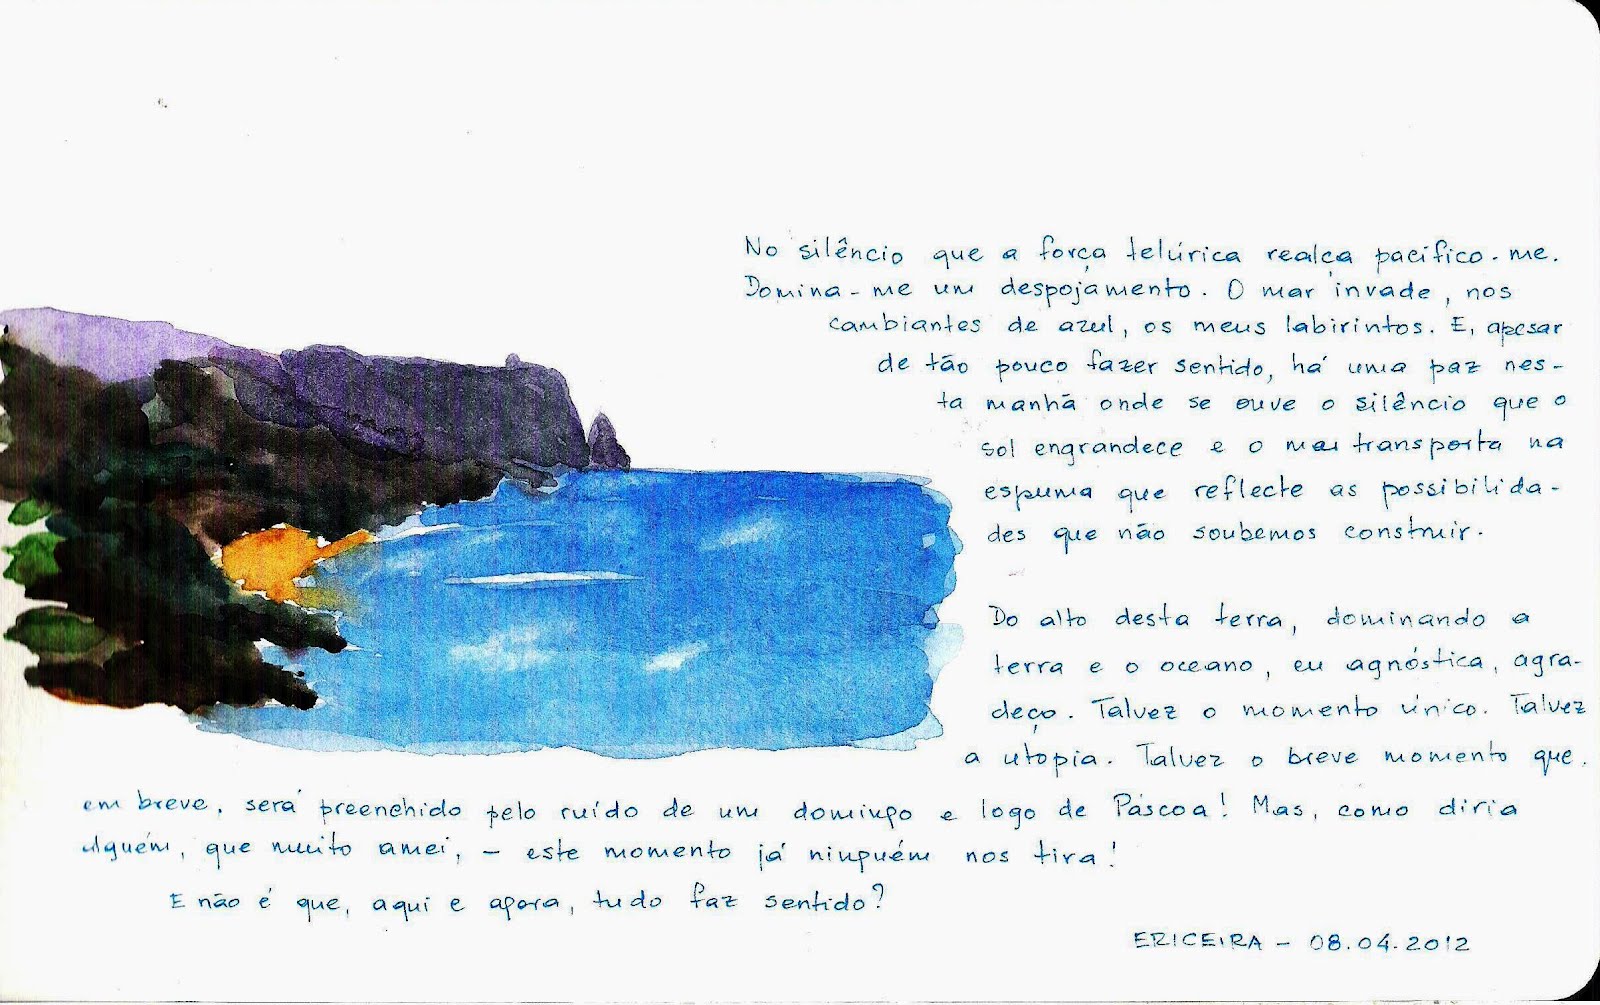 No silêncio que a força telúrica realça pacifico-me.
Domina-me um despojamento. O mar invade, nos
cambiantes de azul, os meus labirintos. E, apesar
de tão pouco fazer sentido, há uma paz nes-
ta manhã onde se ouve o silêncio que o
sol engrandece e o mar transporta na
espuma que reflecte as possibilida-
des que não soubemos construir.
Do alto desta terra, dominando a
terra e o oceano, eu agnóstica, agra-
deço. Talvez o momento único. Talvez
a utopia. Talvez o breve momento que,
em breve, será preenchido pelo ruído de um domingo e logo de Páscoa! Mas, como diria
alguém, que muito amei, - este momento já ninguém nos tira!
E não é que, aqui e agora, tudo faz sentido?
ERICEIRA - 08.04.2012